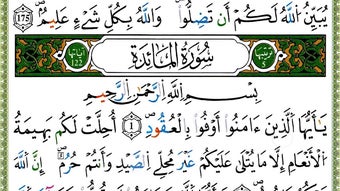 يُبَيِّنُ ٱللَّهُ لَكُمْ أَن تَضِلُّوا۟ ۗ وَٱللَّهُ بِكُلِّ شَىْءٍ عَلِيمٌۢ ١٧٥
ترتيبها ٥ سُورَةُ المَائِدَة آياتها 122
بِسْمِ ٱللَّهِ ٱلرَّحْمَٰنِ ٱلرَّحِيمِ
يَٰٓأَيُّهَا ٱلَّذِينَ ءَامَنُوٓا۟ أَوْفُوا۟ بِٱلْعُقُودِ ۚ ١ أُحِلَّتْ لَكُم بَهِيمَةُ
ٱلْأَنْعَٰمِ إِلَّا مَا يُتْلَىٰ عَلَيْكُمْ غَيْرَ مُحِلِّى ٱلصَّيْدِ وَأَنتُمْ حُرُمٌ ۗ إِنَّ ٱللَّهَ